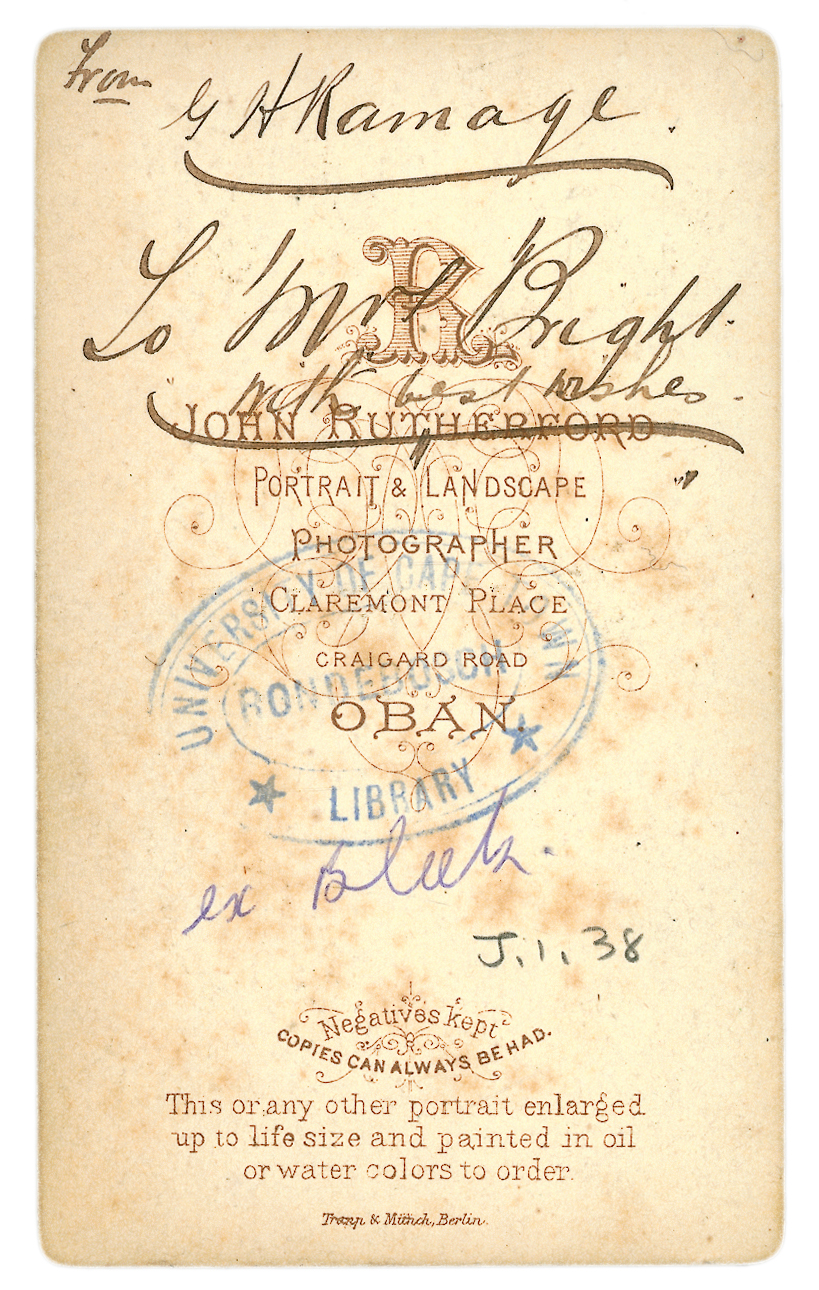 From
G H Ramage.
R
To Mrs. Bright.
with best wishes.
JOHN RUTHERFORD
PORTRAIT & LANDSCAPE
PHOTOGRAPHER
CLAREMONT PLACE
CRAIGARD ROAD
OBAN.
UNIVERSITY OF CAPE TOWN
RONDEBOSCH
LIBRARY
ex Bleek.
J.1.38
Negatives kept
COPIES CAN ALWAYS BE HAD.
This or any other portrait enlarged
up to life size and painted in oil
or water colors to order.
Trapp & Münch, Berlin.